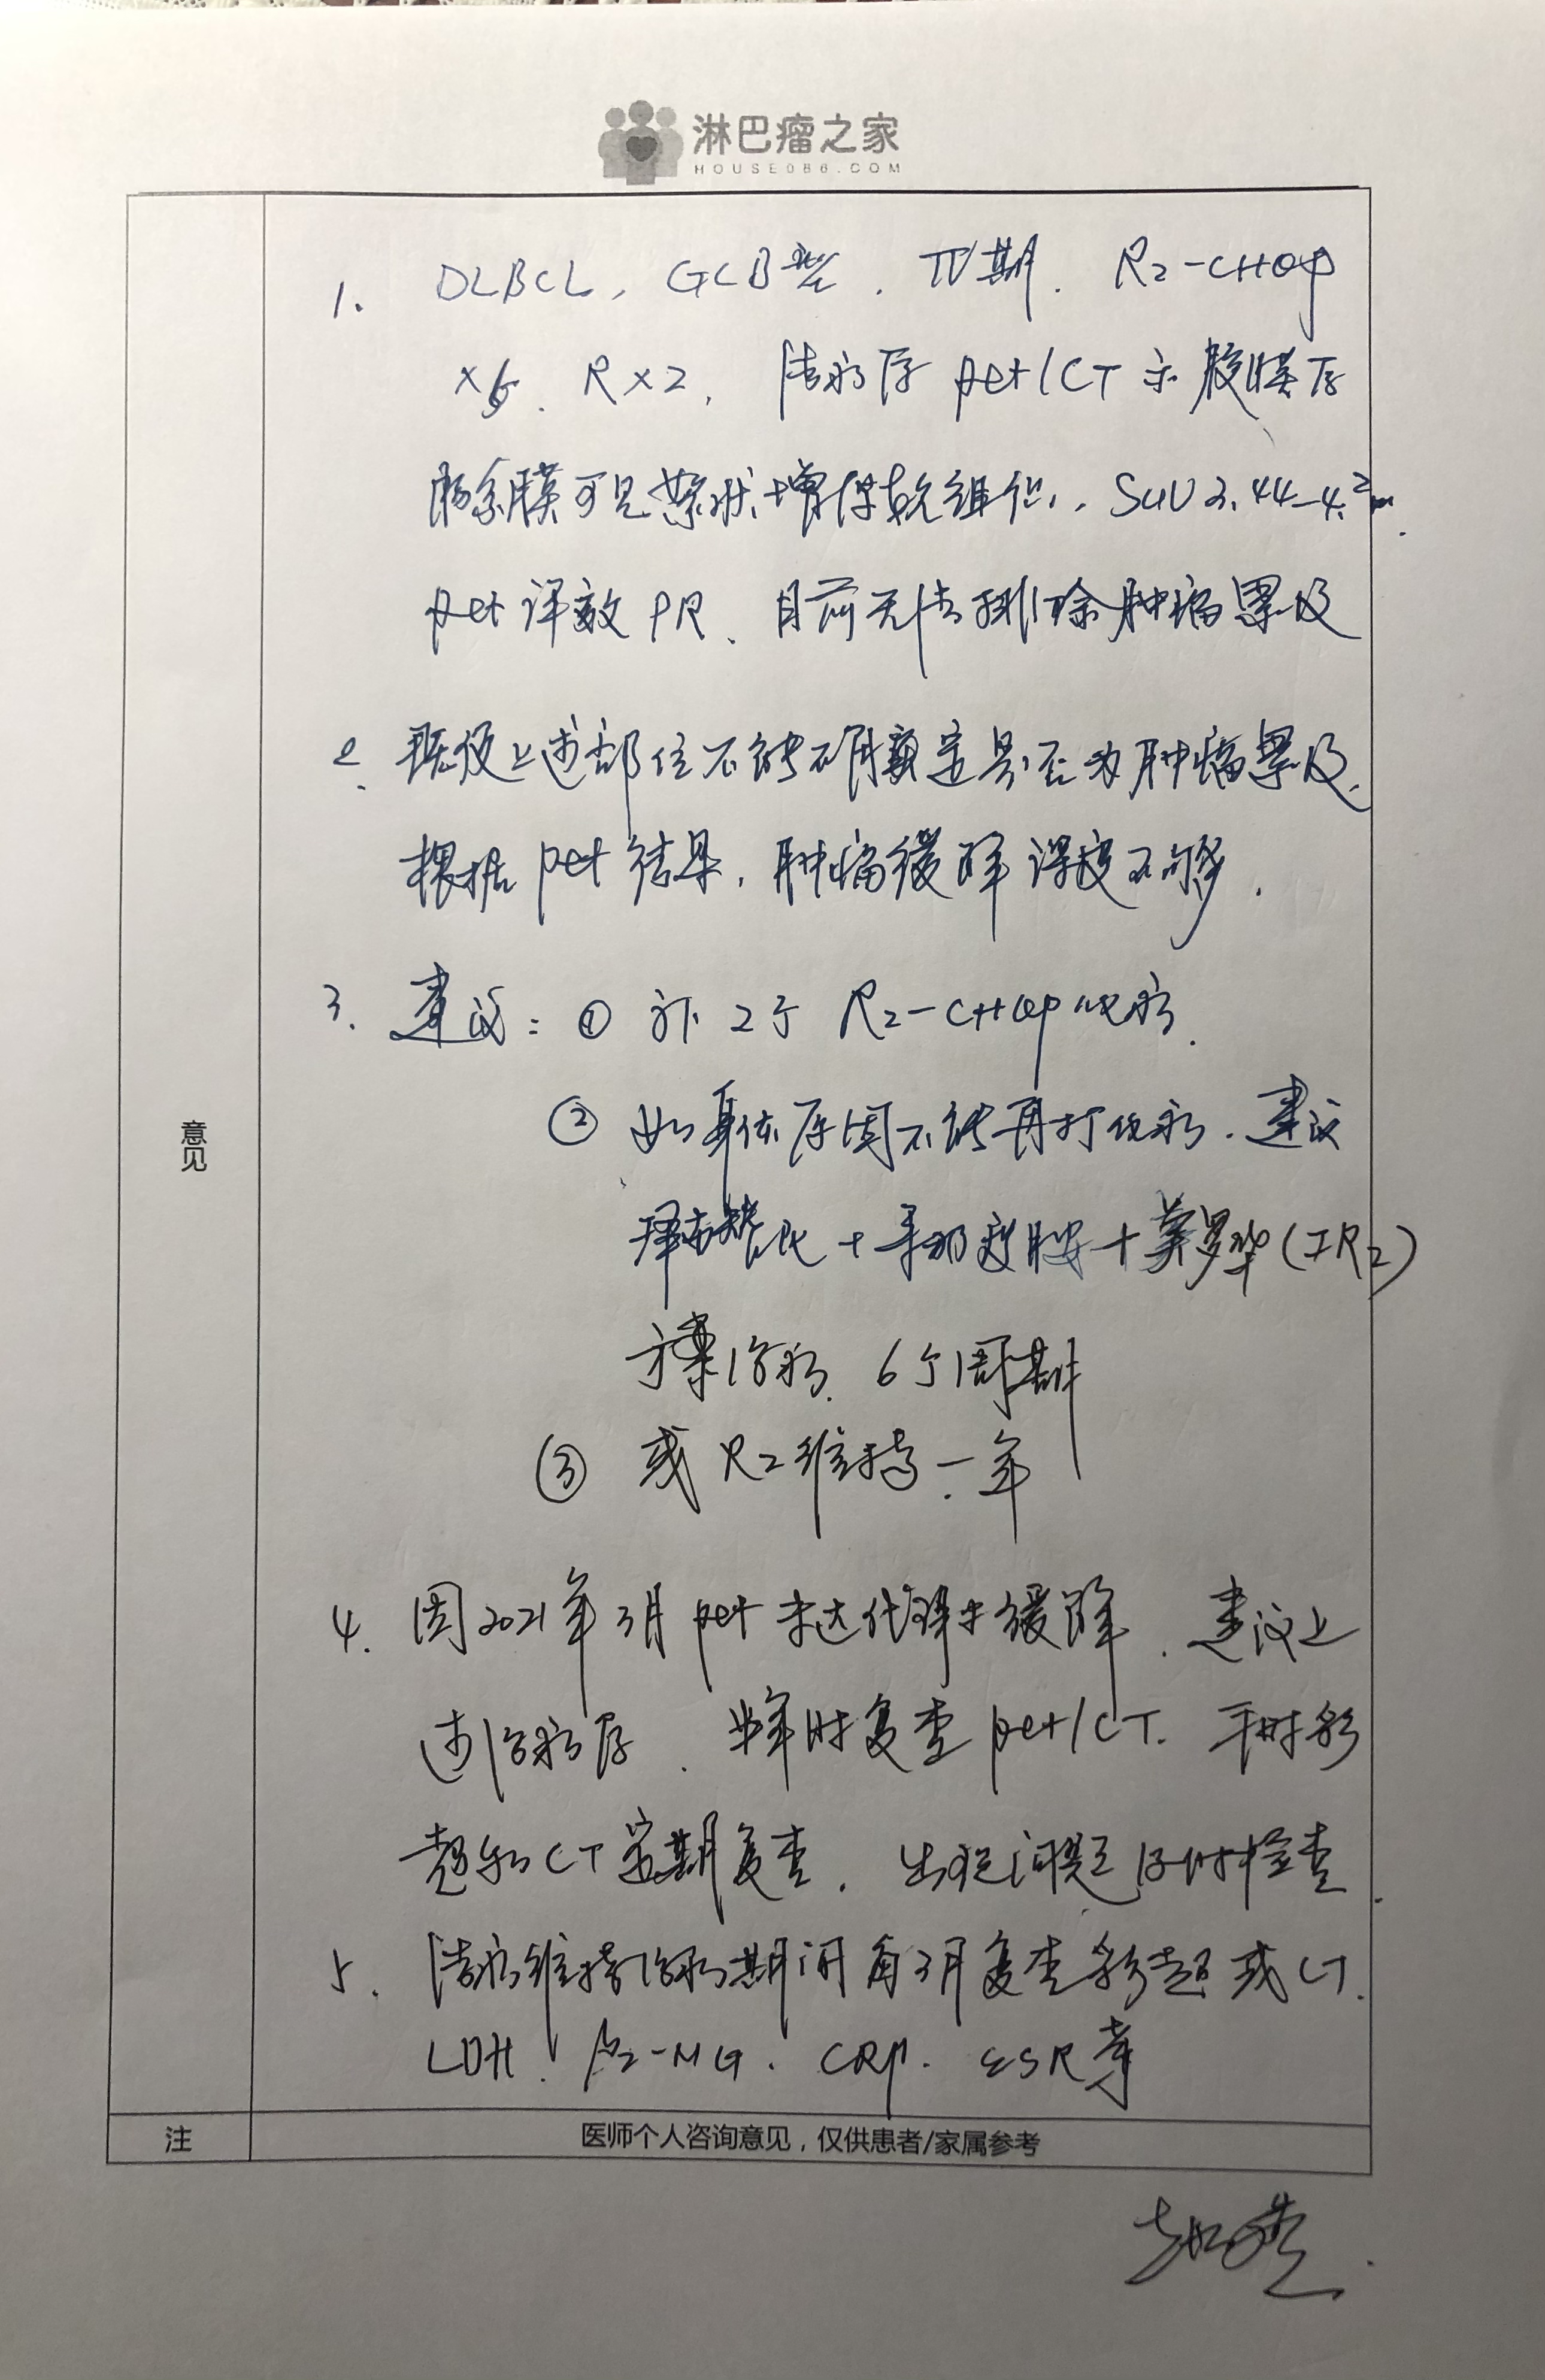 淋巴瘤之家
HOUSE086.COM
1. DLBCL, GCB型, IV期, R2-CHOP
×6, R×2, 结疗后 pet/CT示腹膜后
肠系膜可见絮状增厚软组织, SUV 3.44-4.2
pet评效PR、目前无法排除肿瘤累及
2. 既使上述部位不能明确定是否为肿瘤累及,
根据pet结果, 肿瘤缓解深度不够.
3. 建议: ① 补2个 R2-CHOP化疗.
② 如身体原因不能再打化疗. 建议
泽布替尼+来那度胺+美罗华(IR2)
方案治疗. 6个周期
③ 或R2维持一年
4. 因2021年3月pet未达代谢缓解. 建议上
述治疗后, 半年时复查pet/CT. 平时彩
超和CT定期复查. 出现问题及时检查.
5. 结疗维持治疗期间每3月复查彩超或CT.
LDH. β2-MG. CRP. ESR等
意见
注
医师个人咨询意见，仅供患者/家属参考